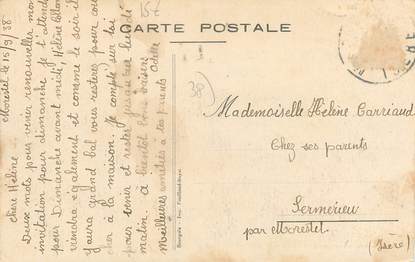 CARTE POSTALE
15€
38)
Morestel le 15/9/38
Chère Hélène
Deux mots pour venir renouveller mon
invitation pour dimanche, je t'attend
pour Dimanche avant midi, Hélène
viendra également et comme le soir il
y aura grand bal vous resterez pour
à la maison. Je compte sur toi
pour venir et rester jusqu'au lundi
matin à bientôt bons baisers
Meilleures amitiés à tes parents Adèle
Mademoiselle Hélène Carriaud
Chez ses parents
Sermérieu
par Morestel.
(Isère)